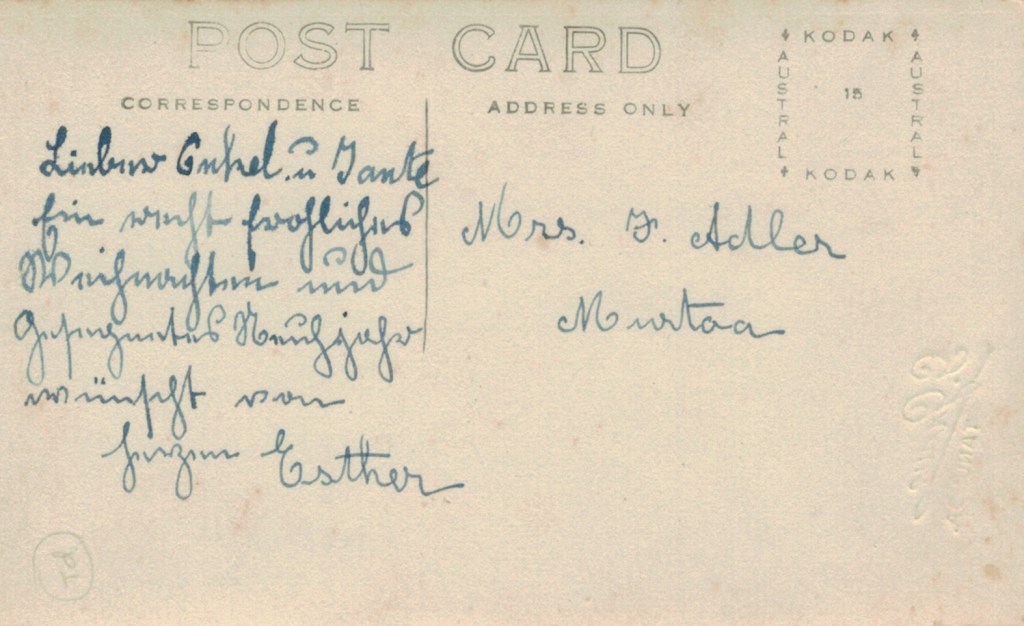 POST CARD
CORRESPONDENCE
ADDRESS ONLY
KODAK
AUSTRAL
15
AUSTRAL
KODAK
Lieber Onkel u Tante
Ein recht frohliches
Weihnachten und
Gesegnetes Neuhjahr
wünscht von
herzen Esther
Mrs. F. Adler
Murtoa